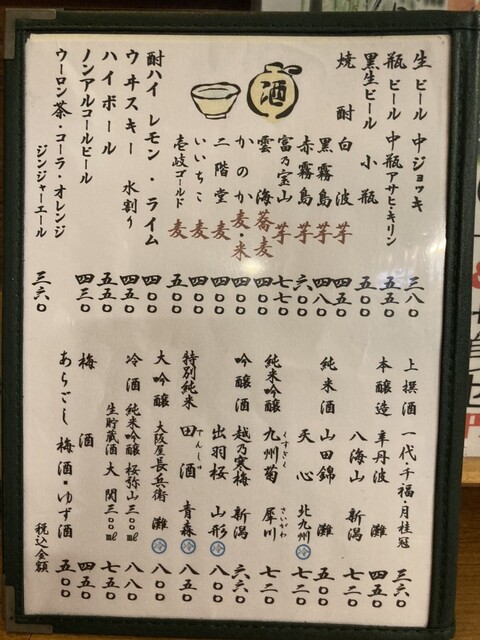 生ビール 中ジョッキ 三八〇
瓶ビール 中瓶アサヒ・キリン 五五〇
黒生ビール 小瓶 五五〇
焼酎 白波 芋 四五〇
黒霧島 芋 四八〇
赤霧島 芋 六〇〇
富乃宝山 芋 七七〇
雲海 蕎麦 四〇〇
かのか 麦・米 四〇〇
二階堂 麦 四〇〇
いいちこ 麦 四〇〇
壱岐ゴールド 麦 五〇〇
酒
酎ハイ レモン・ライム 四〇〇
ウヰスキー 水割り 四五〇
ハイボール 五五〇
ノンアルコールビール 四三〇
ウーロン茶・コーラ・オレンジ
ジンジャーエール 三六〇
上撰酒 一代千福・月桂冠 三六〇
本醸造 辛丹波 灘 四五〇
八海山 新潟 七二〇
純米酒 山田錦 灘 五〇〇
天心 北九州 冷 七二〇
純米吟醸 九州菊 くすぎく 犀川 さいがわ 七二〇
吟醸酒 越乃寒梅 新潟 六六〇
出羽桜 山形 冷 八〇〇
特別純米 田酒 でんしゅ 青森 冷 八五〇
大吟醸 大阪屋長兵衛 灘 冷 八〇〇
冷酒 純米吟醸桜弥山三〇〇ml 八八〇
生貯蔵酒 大関三〇〇ml 七五〇
梅酒 四五〇
あらごし 梅酒・ゆず酒 五〇〇
税込金額